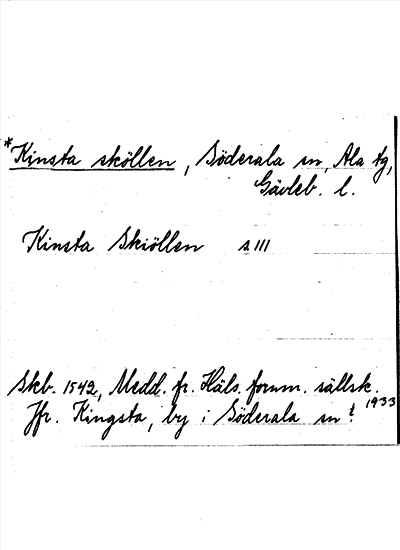 *Kinsta sköllen, Söderala sn, Ala tg,
Gävleb. l.
Kinsta Skiöllen s. 111
Skb. 1542, Medd. fr. Häls. fornm. sällsk. 1933
Jfr. Kingsta, by i Söderala sn!